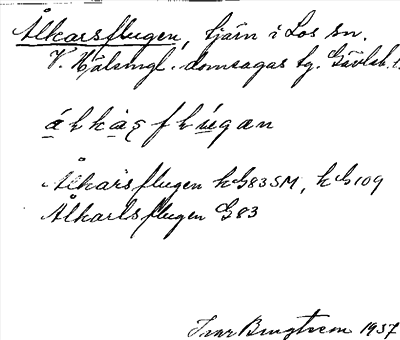 Ålkarsflugen, tjärn i Los sn.
V. Hälsingl. domsagas tg. Gävleb. l.
álkàşflúgan
Ålkärsflugen kG83SM, kG109
Ålkarlsflugen G83
Ivar Bengtsson 1937